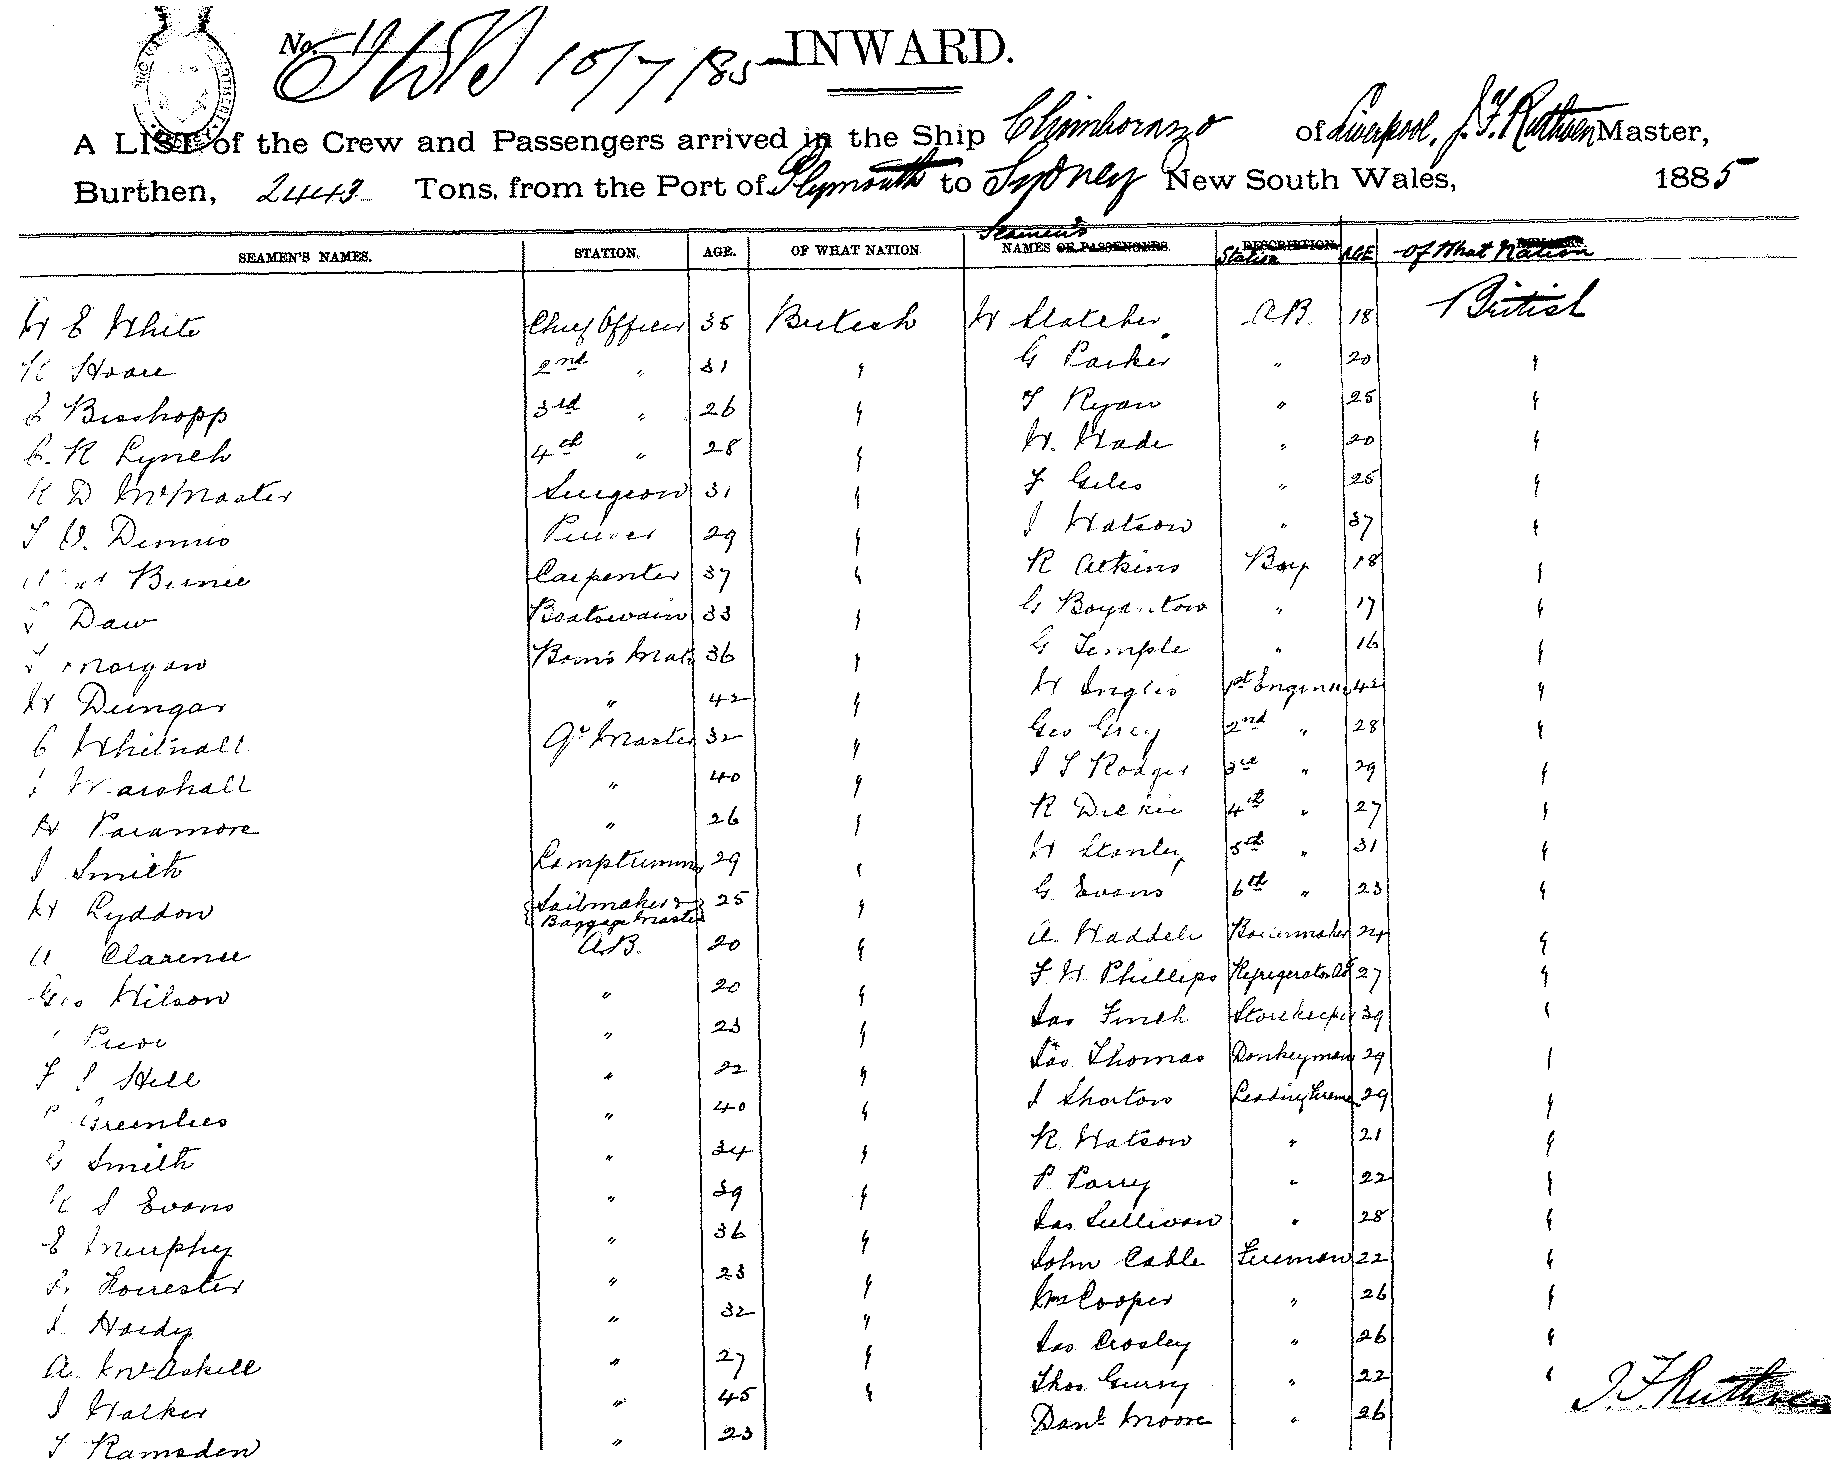 No. 10/7/85 INWARD.
A LIST of the Crew and Passengers arrived in the Ship Chimborazo of Liverpool, J. F. Ruthven Master,
Burthen, 2443 Tons, from the Port of Plymouth to Sydney New South Wales, 1885
SEAMEN'S NAMES. STATION. AGE. OF WHAT NATION Seamen's NAMES OR PASSENGERS. DESCRIPTION Station AGE Of What Nation
W E White Chief Officer 35 British W Slatcher A.B. 18 British
Hoare 2nd " 31 " G Parker " 20 "
Bisshopp 3rd " 26 " T Ryan " 25 "
C. R Lynch 4th " 28 " W. Wade " 20 "
R D McMaster Surgeon 31 " F Giles " 25 "
Dennis Purser 29 " J Watson " 37 "
Birnie Carpenter 37 " R Atkins Boy 18 "
Daw Boatswain 33 " G " 17 "
Morgan Bosn's Mate 36 " G Temple " 16 "
W Dungar " 42 " W Inglis 1st Engineer 42 "
C Whitnall Qr Master 32 " Geo Grey 2nd " 28 "
Marshall " 40 " J T Rodger 3rd " 29 "
H Paramore " 26 " R Dickie 4th " 27 "
J Smith Lamptrimmer 29 " W Stanley 5th " 31 "
W Lyddon Sailmaker & Baggage Master 25 " G. Evans 6th " 23 "
A Clarence A.B. 20 " A. Waddell Boilermaker 24 "
Geo Wilson " 20 " F W Phillips Refrigerator 27 "
" 23 " Jas Finch Storekeeper 39 "
Hill " 22 " Jas Thomas Donkeyman 29 "
Greenlees " 40 " J Shorton Leading Firemen 29 "
G Smith " 34 " R. Watson " 21 "
Evans " 39 " P. Parry " 22 "
E Murphy " 36 " Jas Sullivan " 28 "
Forrester " 23 " John Cable Fireman 22 "
J. Hardy " 32 " Wm Cooper " 26 "
A. McAskill " 27 " Jas Crosley " 26 "
J Walker " 45 " Thos " 22 "
T Ramsden " 23 Danl Moore " 26
J. F. Ruthven